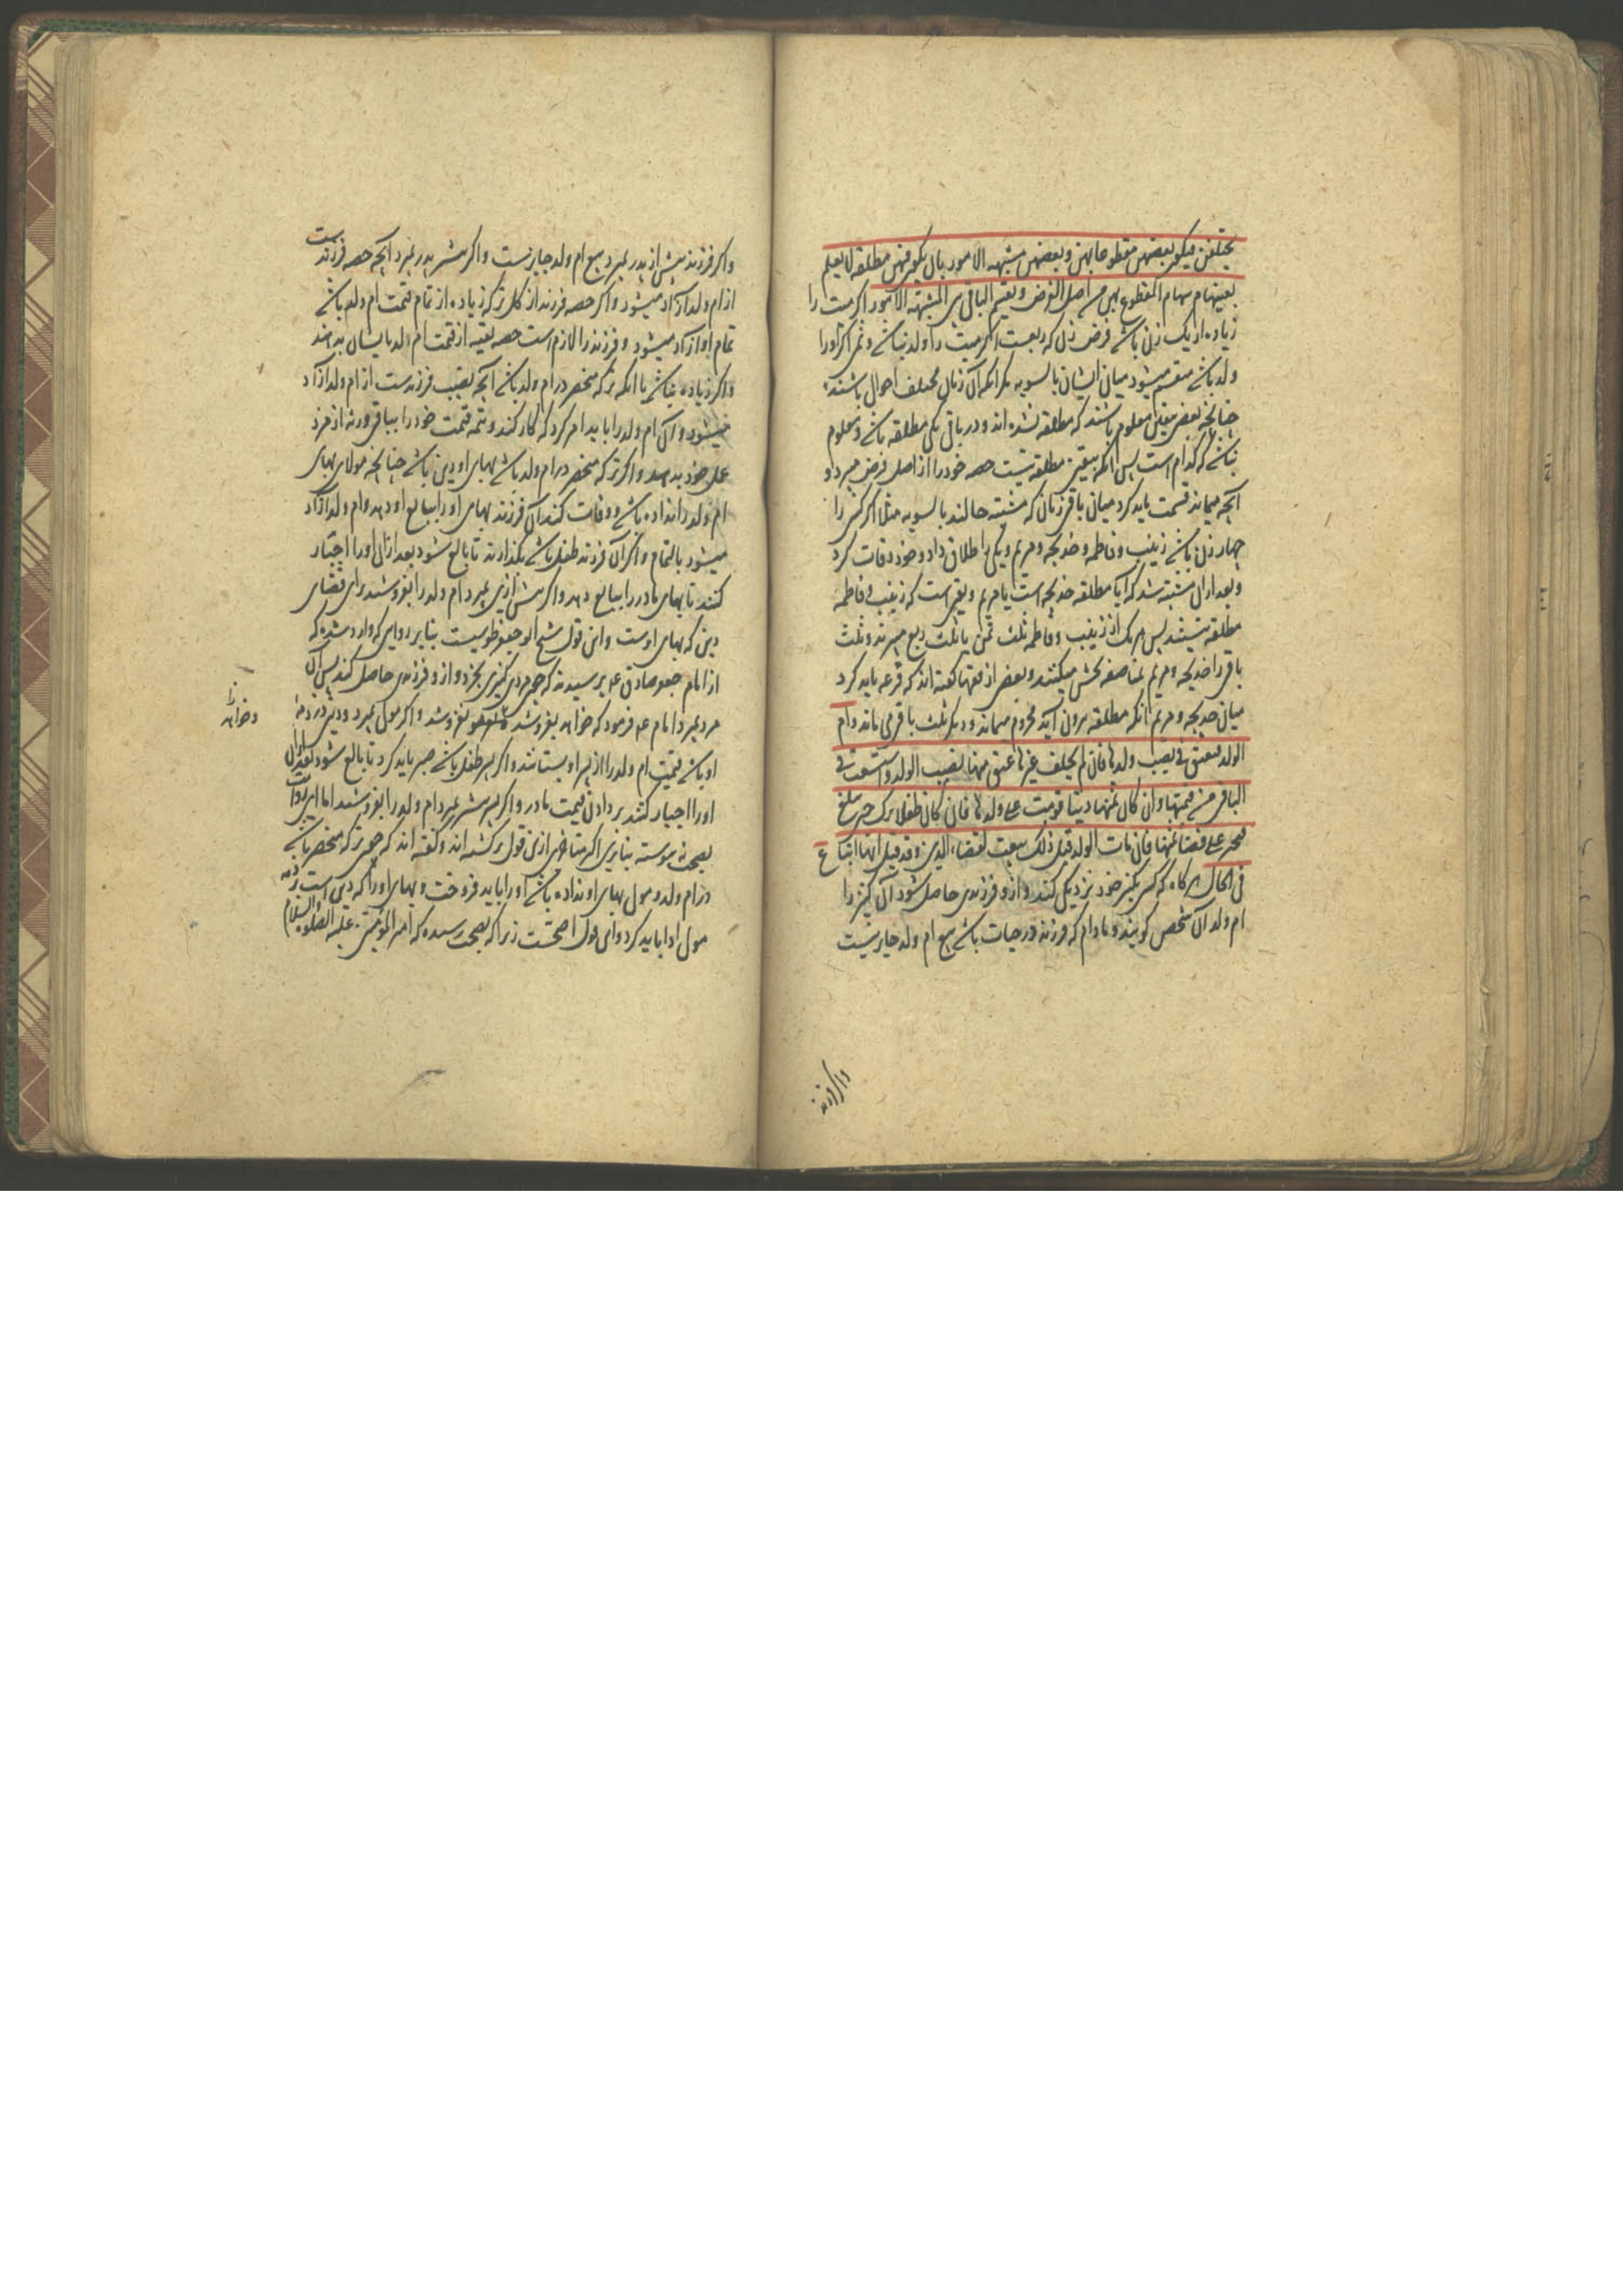 یختلفن فیکون بعضهن مقطوعا بهن و بعضهن مشتبهه الامور بان یکون فیهن مطلقه لا یعلم
بعینها سهام المقطوع بهن من اصل الفرض و یقسم الباقی بین المشتبهة الامور اکر میت را
زیاده از یک زن باشد فرض زن که ربعست اکر میت را ولد نباشد و ثمن اکر او را
ولد باشد منقسم میشود میان ایشان بالسویه مکر انکه آن زنان مختلف احوال باشند
چنانچه بعضی معین معلوم باشند که مطلقه نشده اند و در باقی یکی مطلقه باشد و معلوم
نباشد که کدام است پس انکه بیقین مطلقه نیست حصه خود را از اصل فرض میبرد و
آنچه میماند قسمت باید کرد میان باقی زنان که مشتبه حالند بالسویه مثلا اکر کسی را
چهار زن باشد زینب و فاطمه و خدیجه و مریم و یکی را طلاق داد و خود وفات کرد
و بعد ازان مشتبه شد که آیا مطلقه خدیجه است یا مریم و یقین است که زینب و فاطمه
مطلقه نیستند پس هر یک از زینب و فاطمه ثلث ثمن یا ثلث ربع میبرند و ثلث
باقی را خدیجه و مریم بمناصفه بخش میکنند و بعضی از فقها کفته اند که قرعه باید کرد
میان خدیجه و مریم انکه مطلقه برون آید محروم میماند و دیکر ثلث باقی می ماند و ام
الولد تنعتق فی نصیب ولدها فان لم یخلف غیرها عتق منها نصیب الولد و استسعت فی
الباقی من قیمتها و ان کان ثمنها دینا قومت علی ولدها فان کان طفلا ترک حتی یبلغ
فیجبر علی قضا ثمنها فان مات الولد قبل ذلک بیعت لقضاء الدین و قد قیل انها تباع
فی الحال هرکاه که کسی بکنیز خود نزدیکی کند و ازو فرزندی حاصل شود آن کنیز را
ام ولد آن شخص کویند و مادام که فرزند در حیات باشد بیع ام ولد جایز نیست
و اکر فرزند
و اکر فرزند پیش از پدر بمیرد بیع ام ولد جایز نیست و اکر پیشتر پدر بمیرد آنچه حصه فرزندست
از ام ولد آزاد میشود و اکر حصه فرزند از کل ترکه زیاده از تمام قیمت ام ولد باشد
تمام او آزاد میشود و فرزند را لازم است حصه بقیه از قیمت ام الولد بایشان بدهند
و اکر زیاده نباشد یا انکه ترکه منحصر در ام ولد باشد آنچه نصیب فرزندست از ام ولد آزاد
میشود و آن ام ولد را باید امر کرد که کار کند و تتمه قیمت خود را بباقی ورثه از مزد
عمل خود بدهد و اکر ترکه منحصر در ام ولد باشد بهای او دین باشد چنانچه مولای بهای
ام ولد را نداده باشد و وفات کند آن فرزند بهای او را ببایع او دهد و ام ولد آزاد
میشود بالتمام و اکر آن فرزند طفل باشد بکذارند تا بالغ شود بعد ازان او را اجبار
کنند تا بهای مادر را ببایع دهد و اکر پیش ازین بمیرد ام ولد را بفروشند برای قضای
دین که بهای اوست و این قول شیخ ابو جعفر طوسیست بنا بر روایتی که وارد شده که
از امام جعفر صادق ع پرسیدند که چون مردی کنیزی بخرد و ازو فرزندی حاصل کند پس آن
مرد بمیرد امام ع فرمود که خواهد بفروشد بفروشد و اکر مولی بمیرد و دین در ذمه
و خواهد
او باشد قیمت ام ولد را از پسر او بستانند و اکر پسر طفل باشد صبر باید کرد تا بالغ شود بعد ازان
او را اجبار کنند بر دادن قیمت مادر و اکر پسر پیشتر بمیرد ام ولد را بفروشند اما این روایت
بصحت نپیوسته بنابرین اکثر متاخرین ازین قول برکشته اند و کفته اند که چون ترکه منحصر باشد
در ام ولد و مولی بهای او نداده باشد او را باید فروخت و بهای او را که دین است بر ذمه
مولی ادا باید کرد و این قول اصحست زیرا که بصحت رسیده که امیر المؤمنین علیه الصلوة و السلام